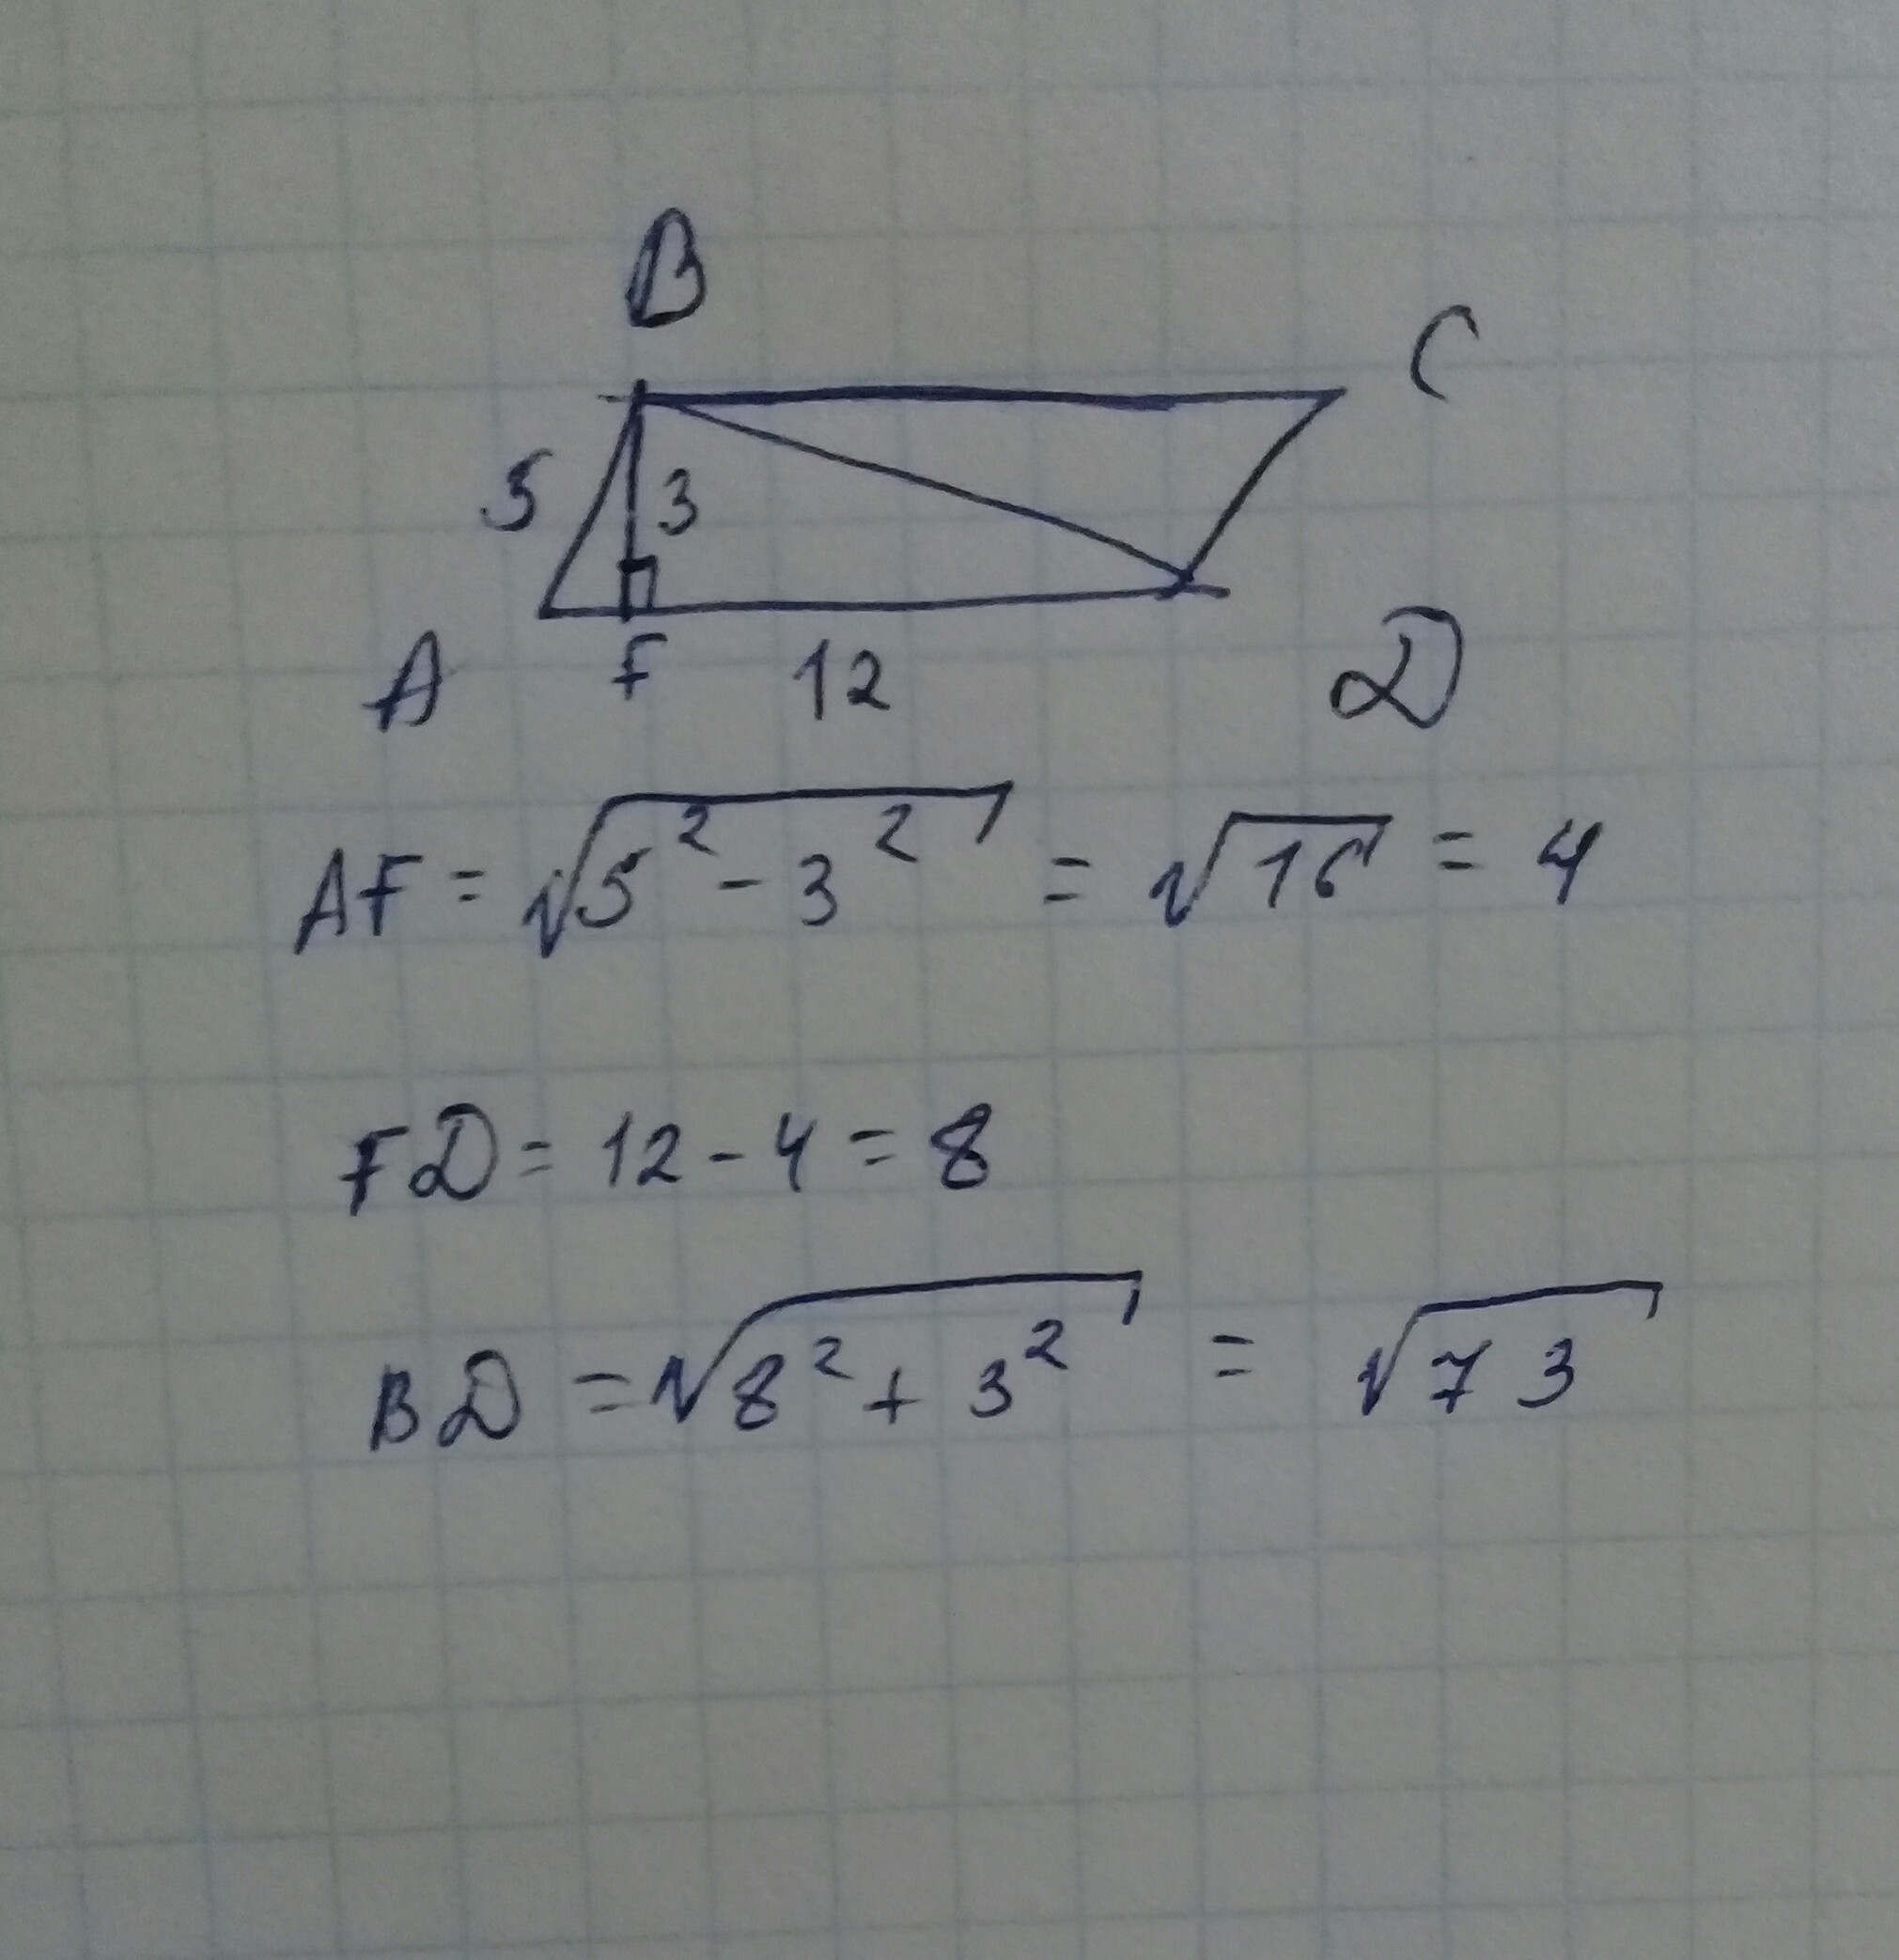 B
C
5
3
A
F
12
D
AF = √5² - 3² = √16 = 4
FD = 12 - 4 = 8
BD = √8² + 3² = √73